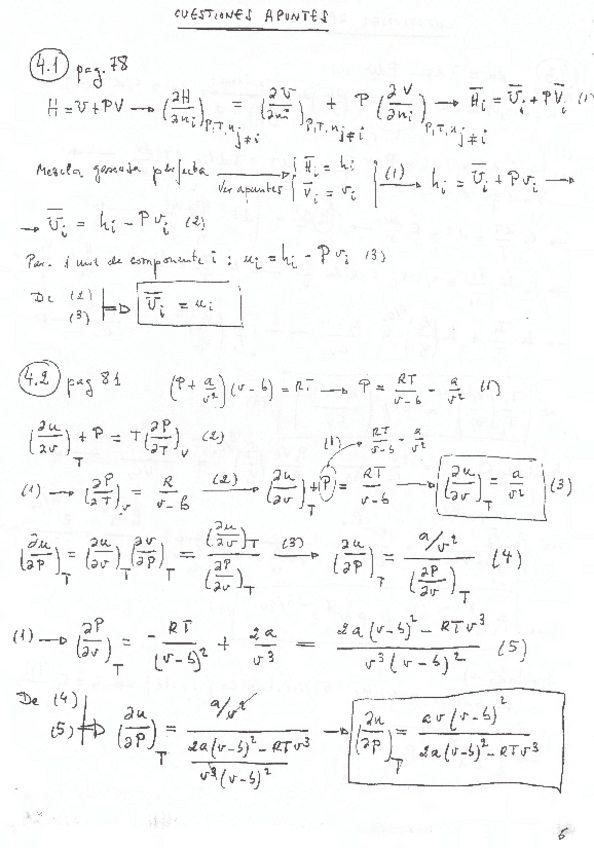 CUESTIONES APUNTES
4.1 pag. 78
H = U + PV → (∂H/∂n_i)_{P,T,n_{j≠i}} = (∂U/∂n_i)_{P,T,n_{j≠i}} + P (∂V/∂n_i)_{P,T,n_{j≠i}} → H̄_i = Ū_i + P V̄_i (1)
Mezcla gaseosa perfecta → Ver apuntes { H̄_i = h_i ; V̄_i = v_i } (1) → h_i = Ū_i + P v_i →
→ Ū_i = h_i - P v_i (2)
1 mol de componente i : u_i = h_i - P v_i (3)
De (2) (3) ⇒ Ū_i = u_i
4.2 pag 81 (P + a/v²)(v - b) = RT → P = RT/(v-b) - a/v² (1)
(∂u/∂v)_T + P = T (∂P/∂T)_v (2)
(1) → RT/(v-b) - a/v²
(1) → (∂P/∂T)_v = R/(v-b) (2) → (∂u/∂v)_T + P = RT/(v-b) → (∂u/∂v)_T = a/v² (3)
(∂u/∂P)_T = (∂u/∂v)_T (∂v/∂P)_T = (∂u/∂v)_T / (∂P/∂v)_T (3) → (∂u/∂P)_T = (a/v²) / (∂P/∂v)_T (4)
(1) → (∂P/∂v)_T = - RT/(v-b)² + 2a/v³ = (2a(v-b)² - RTv³) / (v³(v-b)²) (5)
De (4) (5) ⇒ (∂u/∂P)_T = (a/v²) / ((2a(v-b)² - RTv³) / (v³(v-b)²)) → (∂u/∂P)_T = av(v-b)² / (2a(v-b)² - RTv³)
6